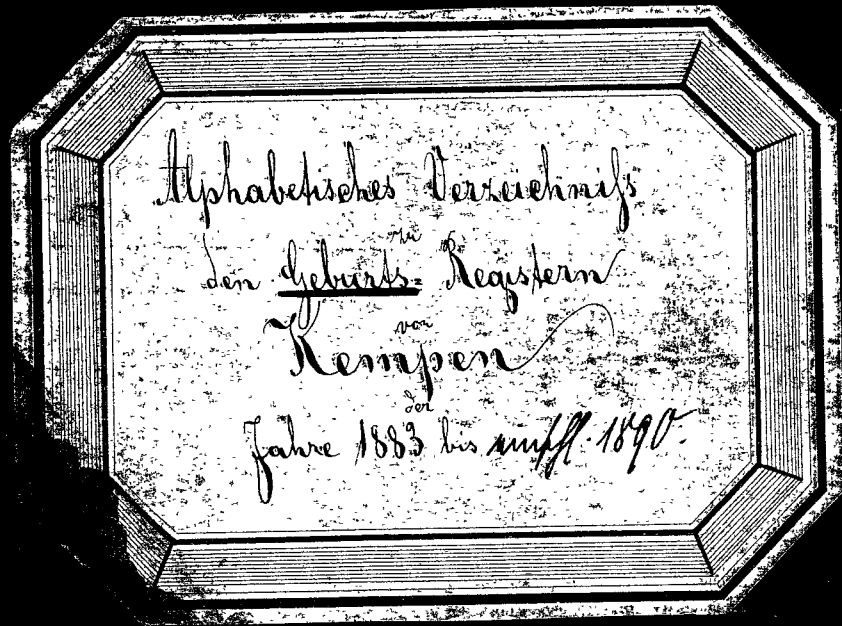 Alphabetisches Verzeichniß
zu
den Geburts= Registern
von
Kempen
der
Jahre 1883 bis einschl. 1890.